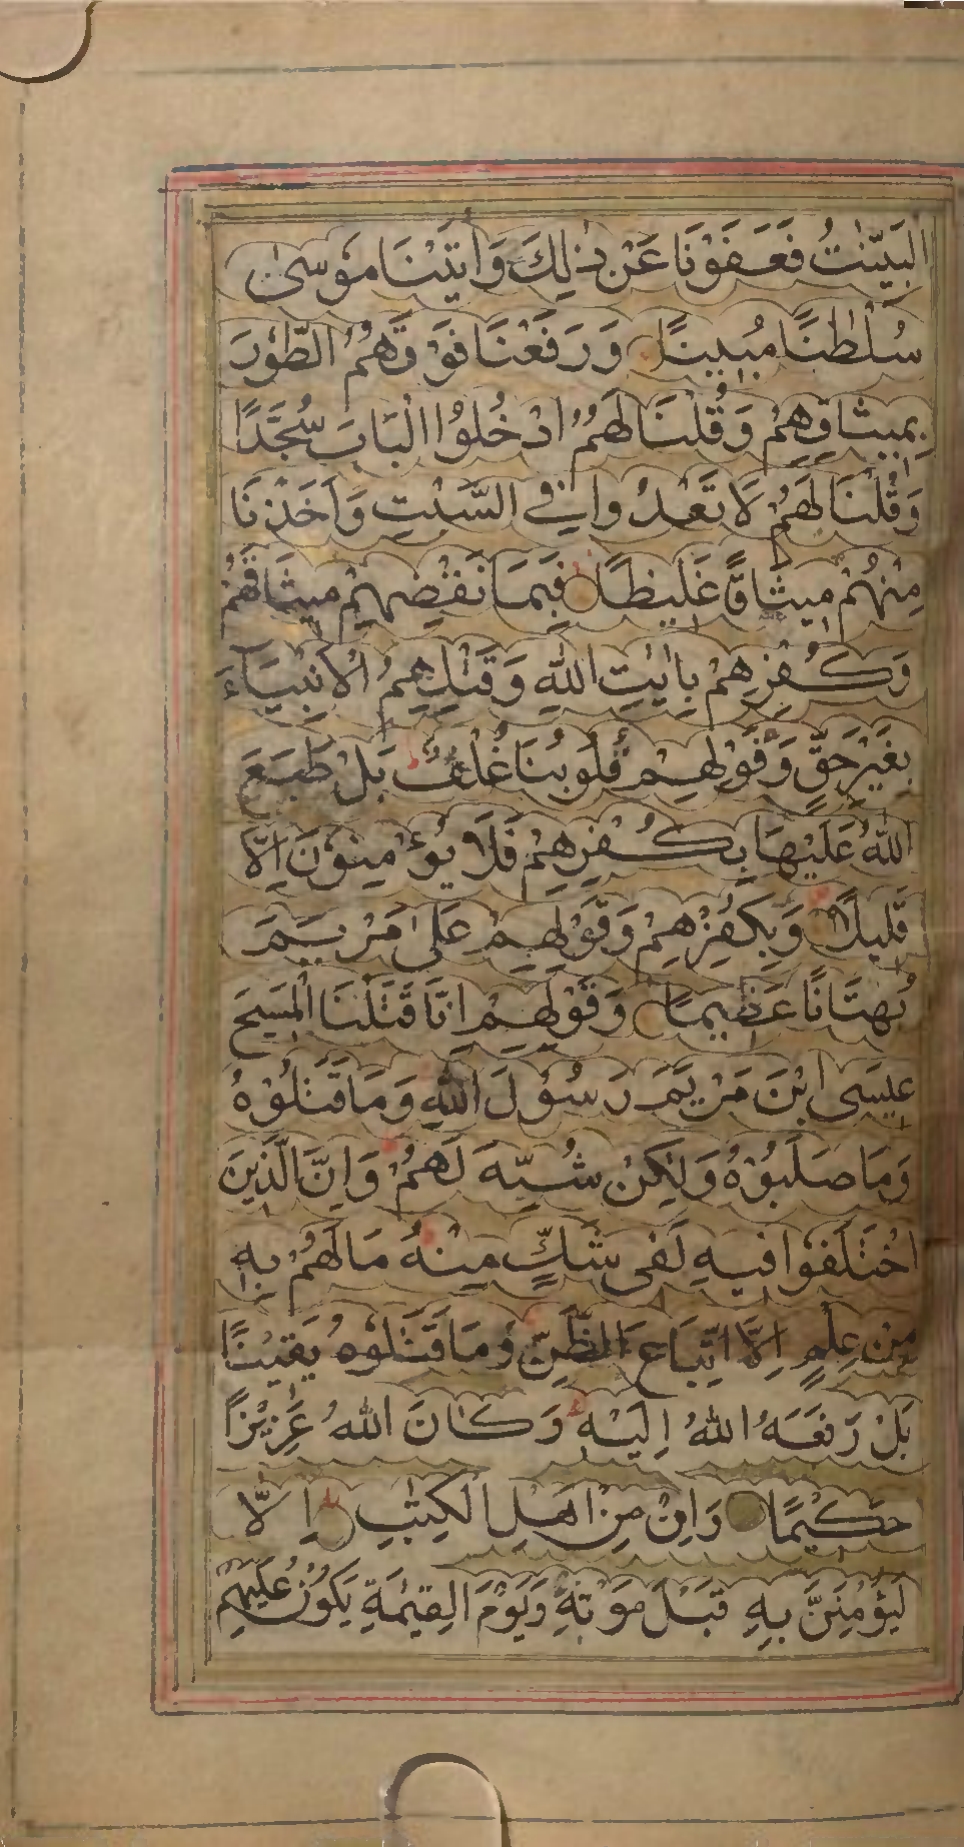 البَيِّنٰتُ فَعَفَوْنَا عَنْ ذٰلِكَ وَاٰتَيْنَا مُوسٰى
سُلْطٰنًا مُبِينًا وَرَفَعْنَا فَوْقَهُمُ الطُّوْرَ
بِمِيثَاقِهِمْ وَقُلْنَا لَهُمُ ادْخُلُوا الْبَابَ سُجَّدًا
وَقُلْنَا لَهُمْ لَا تَعْدُوا فِي السَّبْتِ وَاَخَذْنَا
مِنْهُمْ مِيثَاقًا غَلِيظًا فَبِمَا نَقْضِهِمْ مِيثَاقَهُمْ
وَكُفْرِهِمْ بِاٰيٰتِ اللّٰهِ وَقَتْلِهِمُ الْاَنْبِيَآءَ
بِغَيْرِ حَقٍّ وَقَوْلِهِمْ قُلُوبُنَا غُلْفٌ بَلْ طَبَعَ
اللّٰهُ عَلَيْهَا بِكُفْرِهِمْ فَلَا يُؤْمِنُوْنَ اِلَّا
قَلِيلًا وَبِكُفْرِهِمْ وَقَوْلِهِمْ عَلٰى مَرْيَمَ
بُهْتَانًا عَظِيمًا وَقَوْلِهِمْ اِنَّا قَتَلْنَا الْمَسِيحَ
عِيسَى ابْنَ مَرْيَمَ رَسُوْلَ اللّٰهِ وَمَا قَتَلُوْهُ
وَمَا صَلَبُوْهُ وَلٰكِنْ شُبِّهَ لَهُمْ وَاِنَّ الَّذِينَ
اخْتَلَفُوْا فِيهِ لَفِي شَكٍّ مِنْهُ مَا لَهُمْ بِهِ
مِنْ عِلْمٍ اِلَّا اتِّبَاعَ الظَّنِّ وَمَا قَتَلُوْهُ يَقِيْنًا
بَلْ رَفَعَهُ اللّٰهُ اِلَيْهِ وَكَانَ اللّٰهُ عَزِيْزًا
حَكِيْمًا وَاِنْ مِنْ اَهْلِ الْكِتٰبِ اِلَّا
لَيُؤْمِنَنَّ بِهِ قَبْلَ مَوْتِهِ وَيَوْمَ الْقِيٰمَةِ يَكُوْنُ عَلَيْهِمْ